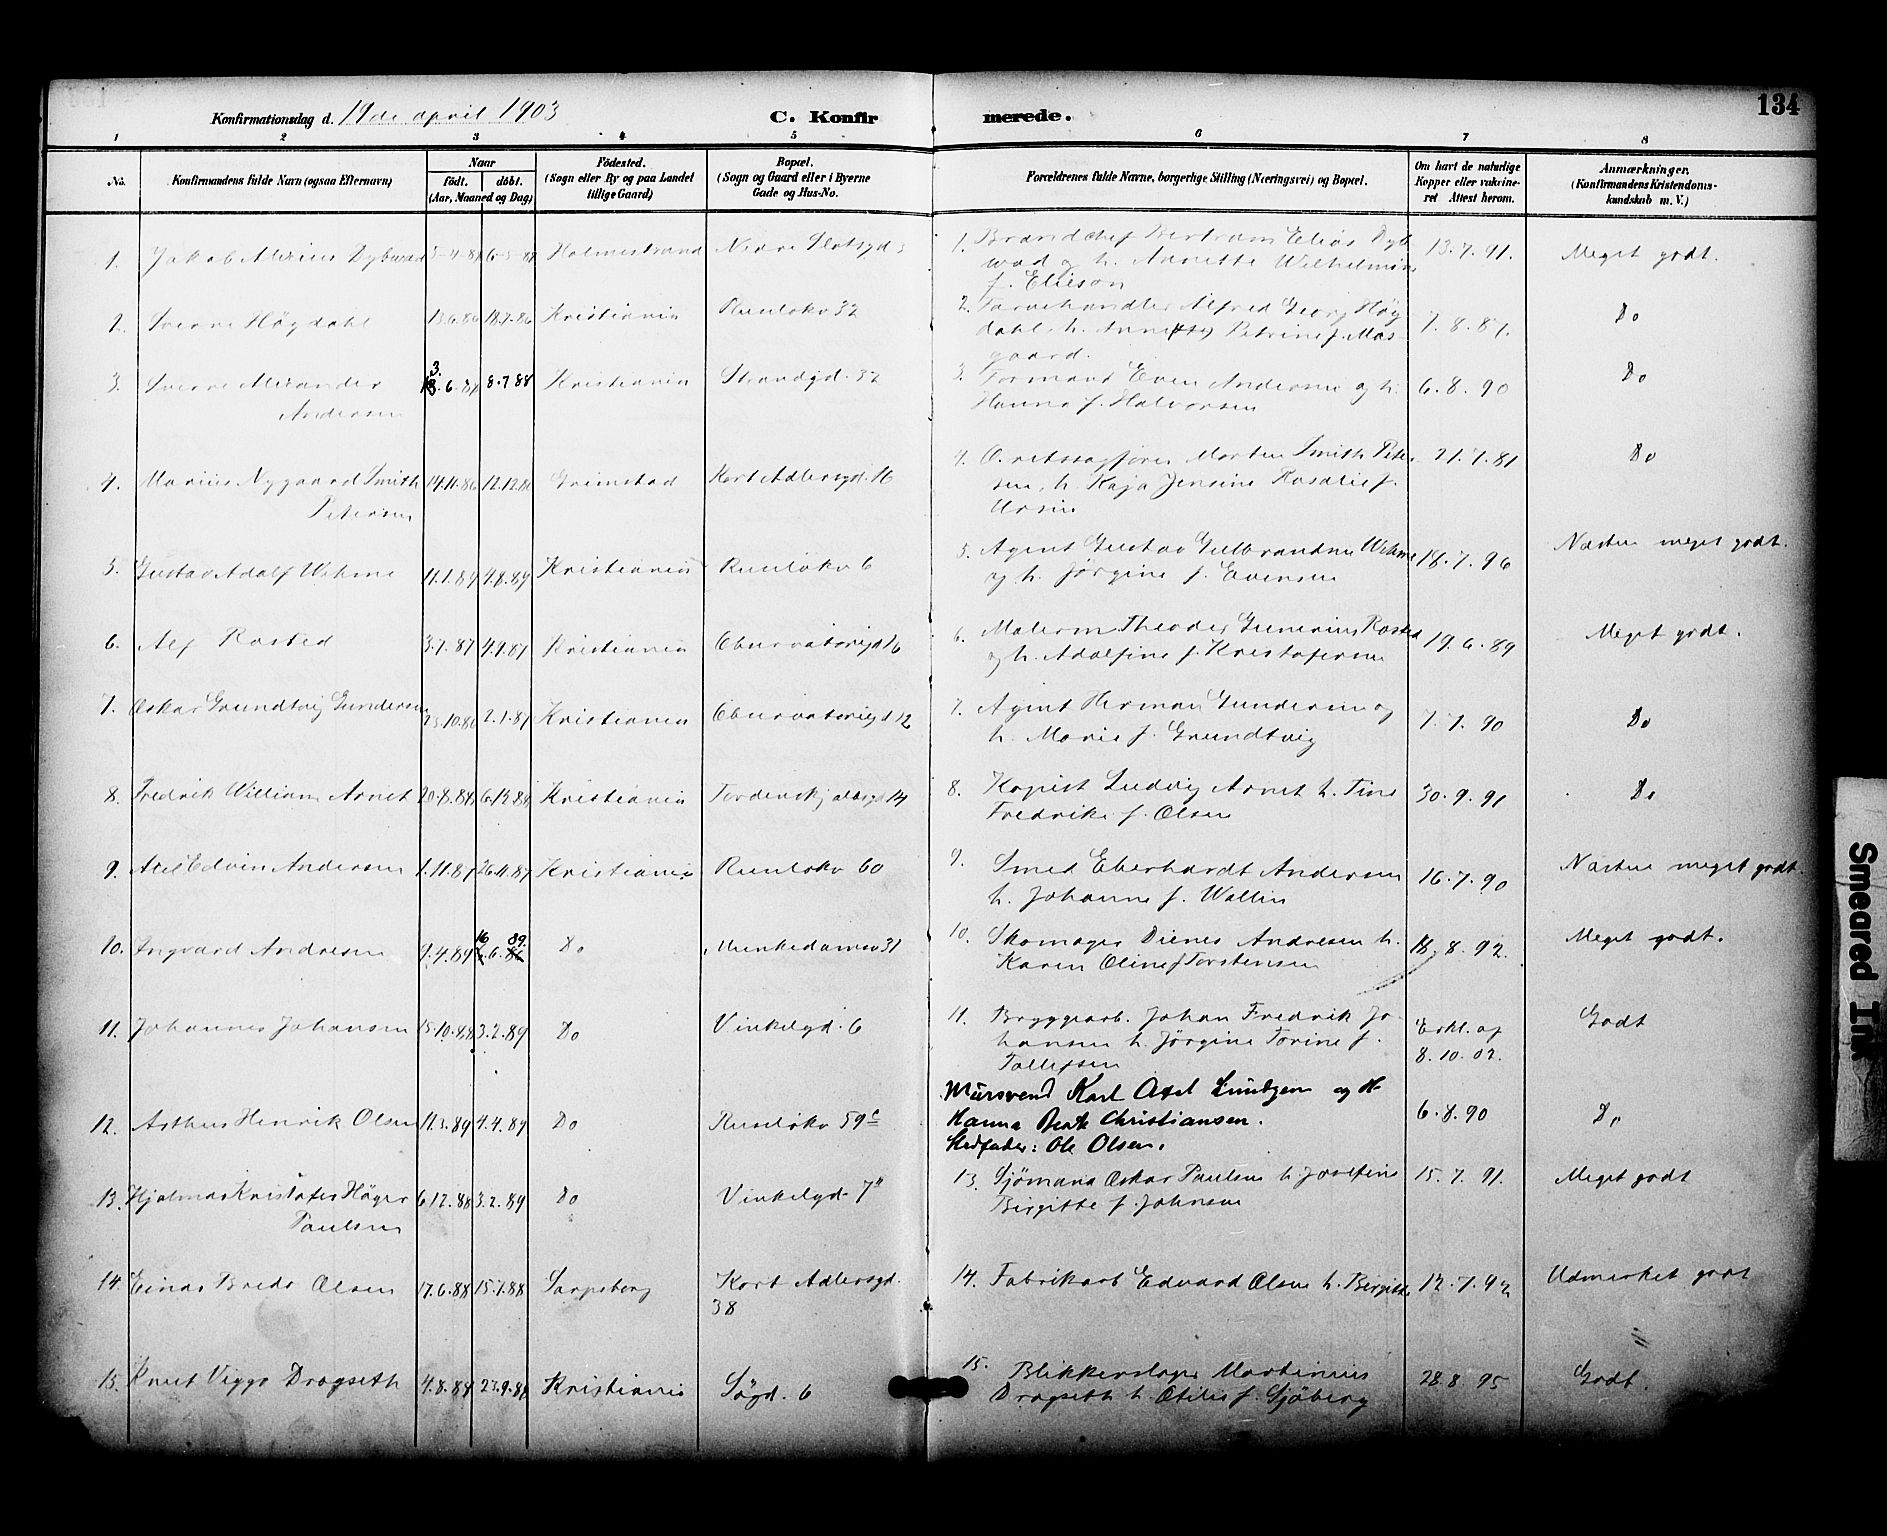 134
Konfirmationsdag d. 19de april 1903
C. Konfirmerede.
1 2 3 4 5 6 7 8
No.
Konfirmandens fulde Navn (ogsaa Efternavn)
Naar
födt. döbt.
(Aar, Maaned og Dag)
Födested.
(Sogn eller By og paa Landet
tillige Gaard)
Bopæl.
(Sogn og Gaard eller i Byerne
Gade og Hus-No.
Forældrenes fulde Navne, borgerlige Stilling (Næringsvei) og Bopæl.
Om havt de naturlige
Kopper eller vakcine-
ret Attest herom.
Anmærkninger.
(Konfirmandens Kristendoms-
kundskab m. V.)
1. Jakob Dybwad Holmestrand Nedre Slotsgd 1. Brandchef Bertram Elias Dyb 13.7.91. Meget godt.
wad og h. Annette Wilhelmine
f. Ellison
2. Sverre Högdahl 13.6.86 18.7.86 Kristiania Ruselökv 32 2. Farvehandler Alfred Georg Hög 7.8.87. Do
dahl, h. Petrine f. Mos-
gaard.
3. Sverre Alexander 3. 6.87 8.7.88 Kristiania Strandgd. 32 3. Formand Even Andersen og h. 6.8.90 Do
Andersen Hanna f. Halvorsen
4. Marius Nygaard Smith 14.11.86 12.12.86 Grimstad Kort Adlersgd. 16 4. O.retssagförer Morten Smith Peter 21.7.81 Do
Petersen sen, h. Kaja Jensine Rosalie f.
Ursin
5. Gustav Adolf Wehme 11.1.89 4.8.89 Kristiania Ruselökv 6 5. Agent Gustav Gulbrandsen Wehme 18.7.96 Næsten meget godt.
og h. Jörgine f. Evensen
6. Alf Rosted 3.7.87 4.9.87 Kristiania Observatorigd 16 6. Malerm. Theodor Gunerius Rosted 19.6.89 Meget godt.
og h. Adolfine f. Kristofersen
7. Oskar Grundtvig Gundersen 23.10.86 2.1.87 Kristiania Observatorigd 12 7. Agent Herman Gundersen og 7.7.90 Do
h. Marie f. Grundtvig
8. Fredrik William Arnet 20.8.88 Kristiania Tordenskjoldsgd 14 8. Kopist Ludvig Arnet h. Tine 30.9.91 Do
Fredrikke f. Olsen
9. Axel Edvin Andersen 1.11.87 26.11.87 Kristiania Ruselökv 60 9. Smed Eberhardt Andersen 16.7.90 Næsten meget godt.
h. Johanne f. Wallin
10. Ingvard Andresen 9.4.89 16 .6. 89 Do Munkedamsv 31 10. Skomager Dienes Andresen h. 18.8.92. Meget godt.
Karen Oline f Torstensen
11. Johannes Johansen 15.10.88 3.2.89 Do Vinkelgd. 6 11. Bryggearb. Johan Fredrik Jo- Erkl. af Godt
hansen h. Jörgine Torine f. 8.10.02.
Tollefsen
12. Arthur Henrik Olsen 12.3.89 4.4.89 Do Ruselökv 59c Mursvend Karl Axel og H- 6.8.90 Do
Hanna Christiansen.
Stedfader: Ole Olsen.
13. Hjalmar Kristofer Höger 6.12.88 3.2.89 Do Vinkelgd. 7II 13. Sjömand Oskar Paulsen h. Josefine 15.7.91. Meget godt
Paulsen Birgitte f. Johnsen
14. Einar Bredo Olsen 17.6.88 15.7.88 Sarpsborg Kort Adlersgd. 14. Fabrikarb Edvard Olsen h. Birgitte 12.7.92 Udmerket godt
38
15. Knut Viggo Dragseth 4.8.87 23.9.87 Kristiania Sögd. 6 15. Blikkenslager Martinius 28.8.95 Godt.
Dragseth h. Otilie f. Sjöberg
Smeared Ink